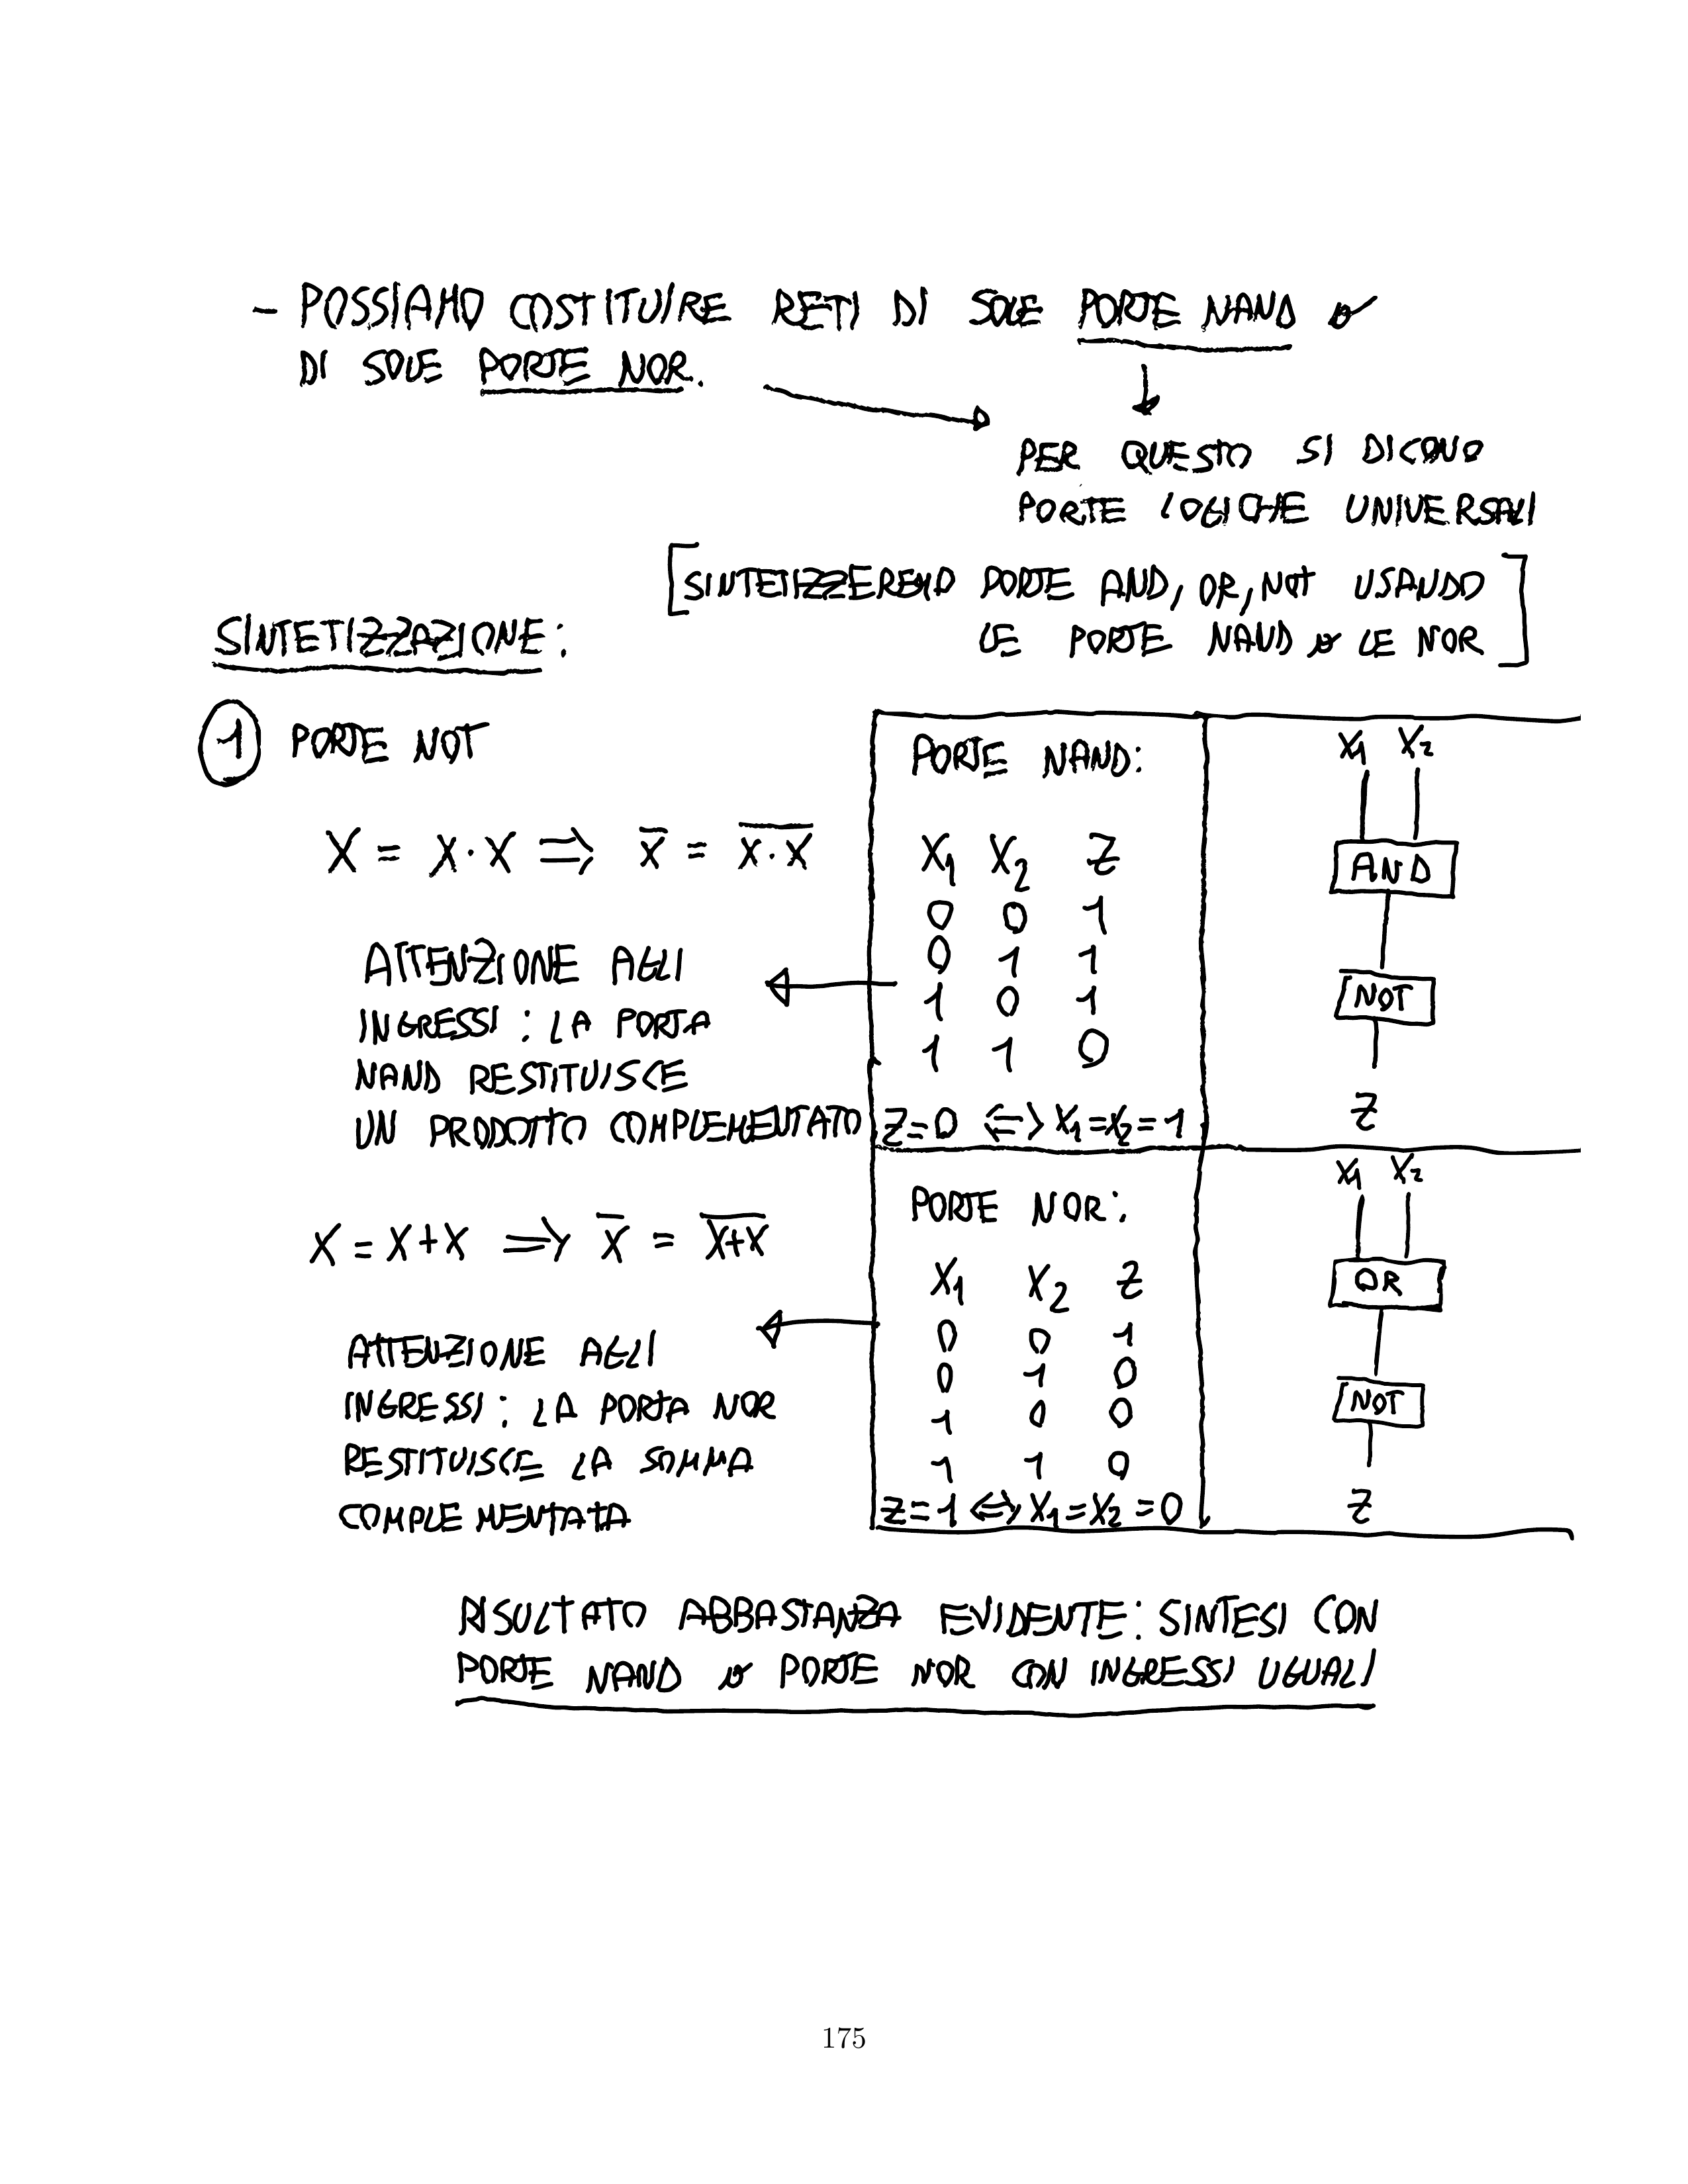 - POSSIAMO COSTITUIRE RETI DI SOLE PORTE NAND o
DI SOLE PORTE NOR.
PER QUESTO SI DICONO
PORTE LOGICHE UNIVERSALI
[SINTETIZZEREMO PORTE AND, OR, NOT USANDO
LE PORTE NAND o LE NOR]
SINTETIZZAZIONE:
1 PORTE NOT
X = X·X ⟹ X̅ = \overline{X·X}
ATTENZIONE AGLI
INGRESSI: LA PORTA
NAND RESTITUISCE
UN PRODOTTO COMPLEMENTATO
PORTE NAND:
X₁ X₂ Z
0 0 1
0 1 1
1 0 1
1 1 0
Z=0 ⟺ X₁=X₂=1
X₁ X₂
AND
NOT
Z
X = X+X ⟹ X̅ = \overline{X+X}
ATTENZIONE AGLI
INGRESSI: LA PORTA NOR
RESTITUISCE LA SOMMA
COMPLEMENTATA
PORTE NOR:
X₁ X₂ Z
0 0 1
0 1 0
1 0 0
1 1 0
Z=1 ⟺ X₁=X₂=0
X₁ X₂
OR
NOT
Z
RISULTATO ABBASTANZA EVIDENTE: SINTESI CON
PORTE NAND o PORTE NOR CON INGRESSI UGUALI
175